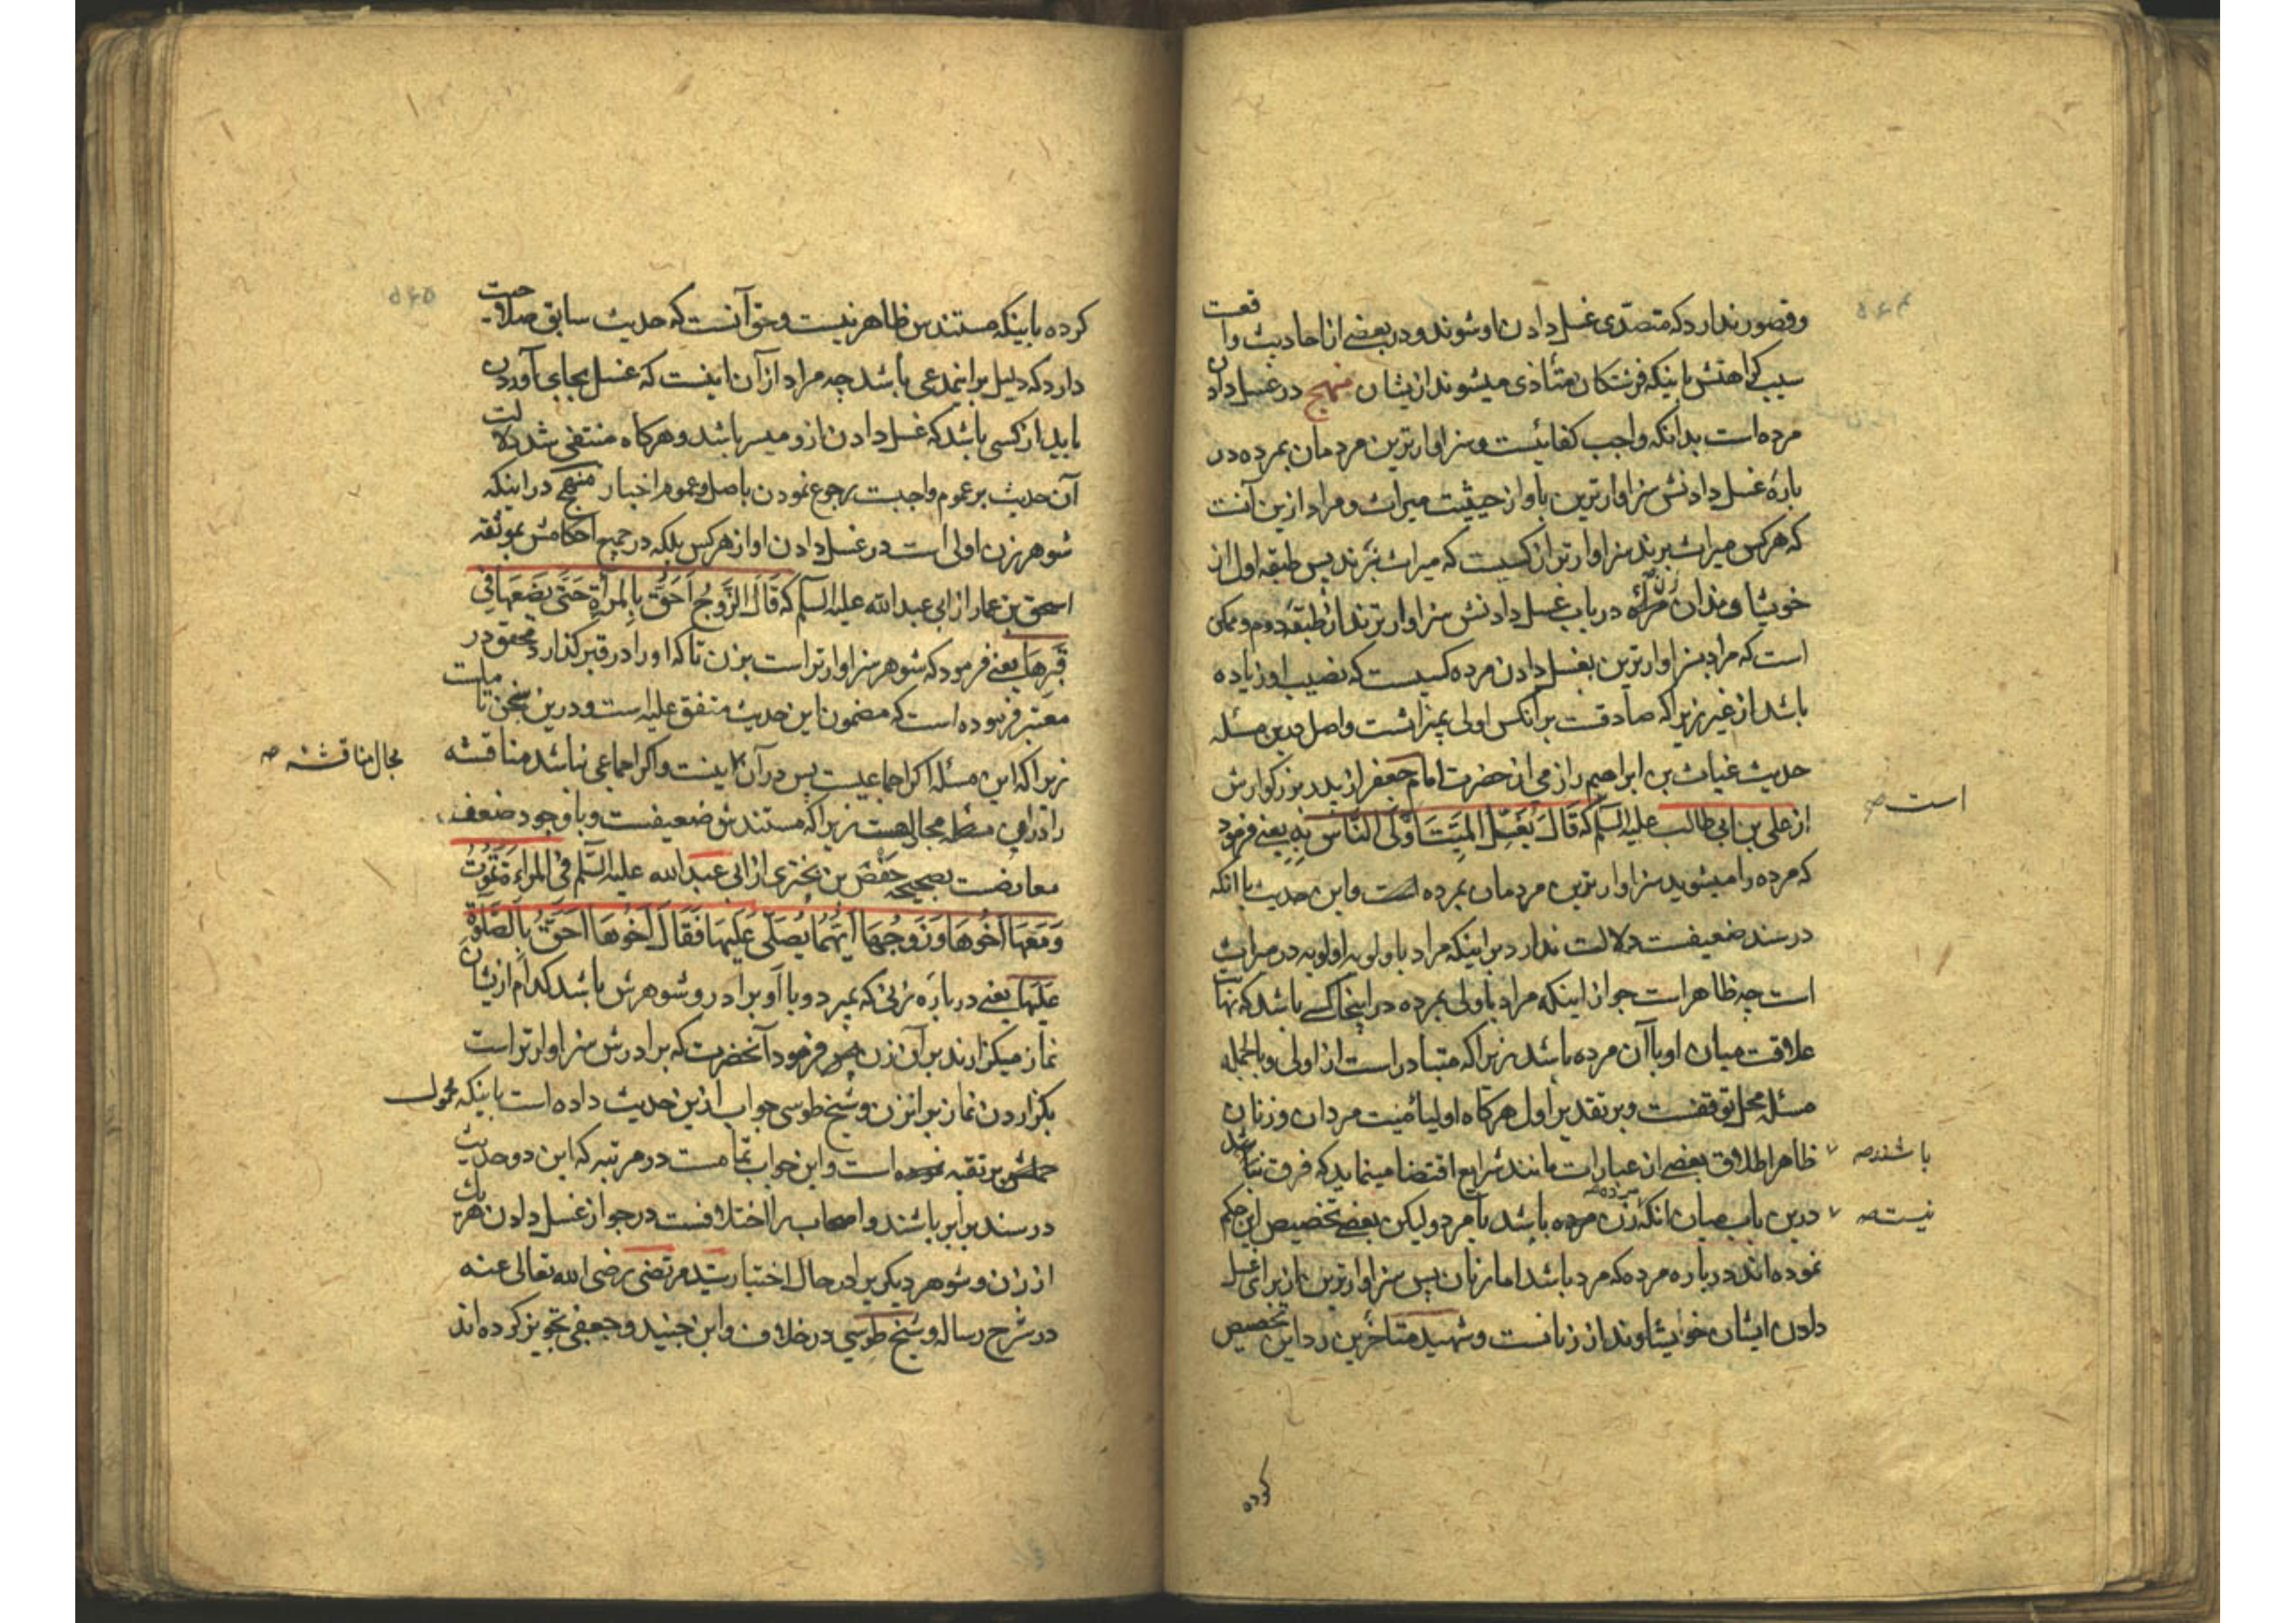 وقصور ندارد که متصدّی غسل دادن او شوند و در بعضے از احادیث واقعت
سبب کراهتش باینکه فرشتکان متأذی میشوند ازیشان منهج در غسل دادن
مرده است بدانکه واجب کفائیست و سزاوارترین مردمان بمرده در
بارهٔ غسل دادنش سزاوارترین باو از حیثیت میراث و مراد ازین آنست
که هرکس میراث برند سزاوارتر از کسیست که میراث نبرند پس طبقه اول از
خویشاوندان مرده در باب غسل دادنش سزاوارترند از طبقهٔ دوم و ممکن
است که مراد بسزاوارترین بغسل دادن مرده کسیست که نصیب او زیاده
باشد از غیر زیراکه صادقت برآنکس اولی بمیراثست و اصل درین مسئله
حدیث غیاث بن ابراهیم رازمی از حضرت امام جعفر از پدر بزرکوارش
از علی بن ابی طالب علیه السلم که قَالَ یُغَسِّلُ المَیِّتَ اَوْلَی النَّاسِ بِهِ یعنے فرمود
که مرده را میشوید سزاوارترین مردمان بمرده است و این حدیث با آنکه
است صح
در سند ضعیفست دلالت ندارد براینکه مراد باولویه اولویه در میراث
است چه ظاهر است جواز اینکه مراد باولی بمرده در اینجا کسے باشد که نهایت
علاقت میان او با آن مرده باشد زیراکه متبادر است از اولی و بالجمله
مسئله محل توقفست و بر تقدیر اول هرکاه اولیاء میت مردان و زنان
باشند صح
ظاهر اطلاق بعضے از عبارات مانند شرایع اقتضا مینماید که فرق نباشد
درین باب میان آنکه مرده زن باشد یا مرد ولیکن بعضے تخصیص این حکم
نیست صح
نموده اند در باره مرده که مرد باشد اما زنان پس سزاوارترین از برای غسل
دادن ایشان خویشاوند از زنانست و شهید متاخرین رد این تخصیص
کرده
کرده باینکه مستندش ظاهر نیست و حق آنست که حدیث سابق صلاحیت
دارد که دلیل براینمدعی باشد چه مراد از آن اینست که غسل بجای آوردن
باید از کسی باشد که غسل دادن از و میسر باشد و هرکاه منتفی شد دلالت
آن حدیث بر عموم واجبت رجوع نمودن باصل و عموم اخبار منهج در اینکه
شوهر زن اولی است در غسل دادن او از هرکس بلکه در جمیع احکامش بموثقه
اسحق بن عمار از ابی عبد الله علیه السلم که قَالَ الزَّوجُ اَحَقُّ بِالْمَرأةِ حَتّی یَضَعَهَا فی
قَبْرِهَا یعنے فرمود که شوهر سزاوارتر است بزن تاکه او را در قبر کذارد محقق در
معتبر فرموده است که مضمون این حدیث متفق علیه است و درین سخن تاملست
زیراکه این مسئله اکر اجماعیست پس در آن اینست و اکر اجماعی نباشد مناقشه
مجال مناقشه صح
را در این مسئله مجال هست زیراکه مستندش ضعیفست و با وجود ضعف
معارضست بصحیحه حَفْص بن بختری از ابی عبد الله علیه السَّلم فی المرأة تَمُوتُ
وَمَعَهَا اَخُوهَا وَزَوجُهَا اَیُّهُمَا یُصَلّی عَلَیهَا فَقَالَ اَخُوهَا اَحَقُّ بِالصَّلوةِ
عَلَیهَا یعنے در بارهٔ زنی که بمیرد و با او برادر و شوهرش باشد کدام ازیشان
نماز میکزارند بر آن زن پس فرمود آنحضرت که برادرش سزاوارتر است
بکزاردن نماز بر انزن و شیخ طوسی جواب ازین حدیث داده است باینکه محمول
بر تقیه است و این جواب تمامست در مرتبه که این دو حدیث
در سند برابر باشند و اصحاب را اختلافست در جواز غسل دادن هریک
از زن و شوهر دیکری را در حال اختیار سیّد مرتضی رضی الله تعالی عنه
در شرح رساله و شیخ طوسی در خلاف و ابن جنید و جعفی تجویز کرده اند